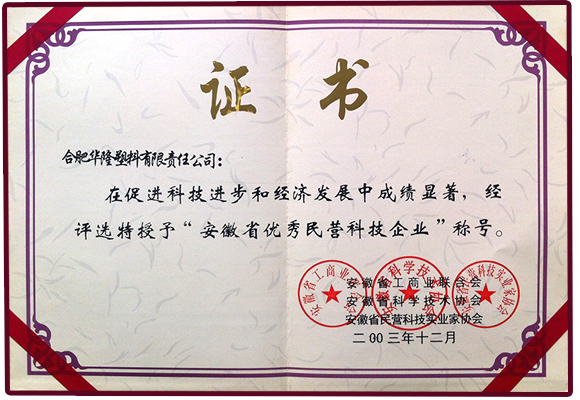 证 书
合肥华隆塑料有限责任公司：
在促进科技进步和经济发展中成绩显著，经
评选特授予“安徽省优秀民营科技企业”称号。
安徽省工商业联合会
安徽省科学技术协会
安徽省民营科技实业家协会
二00三年十二月